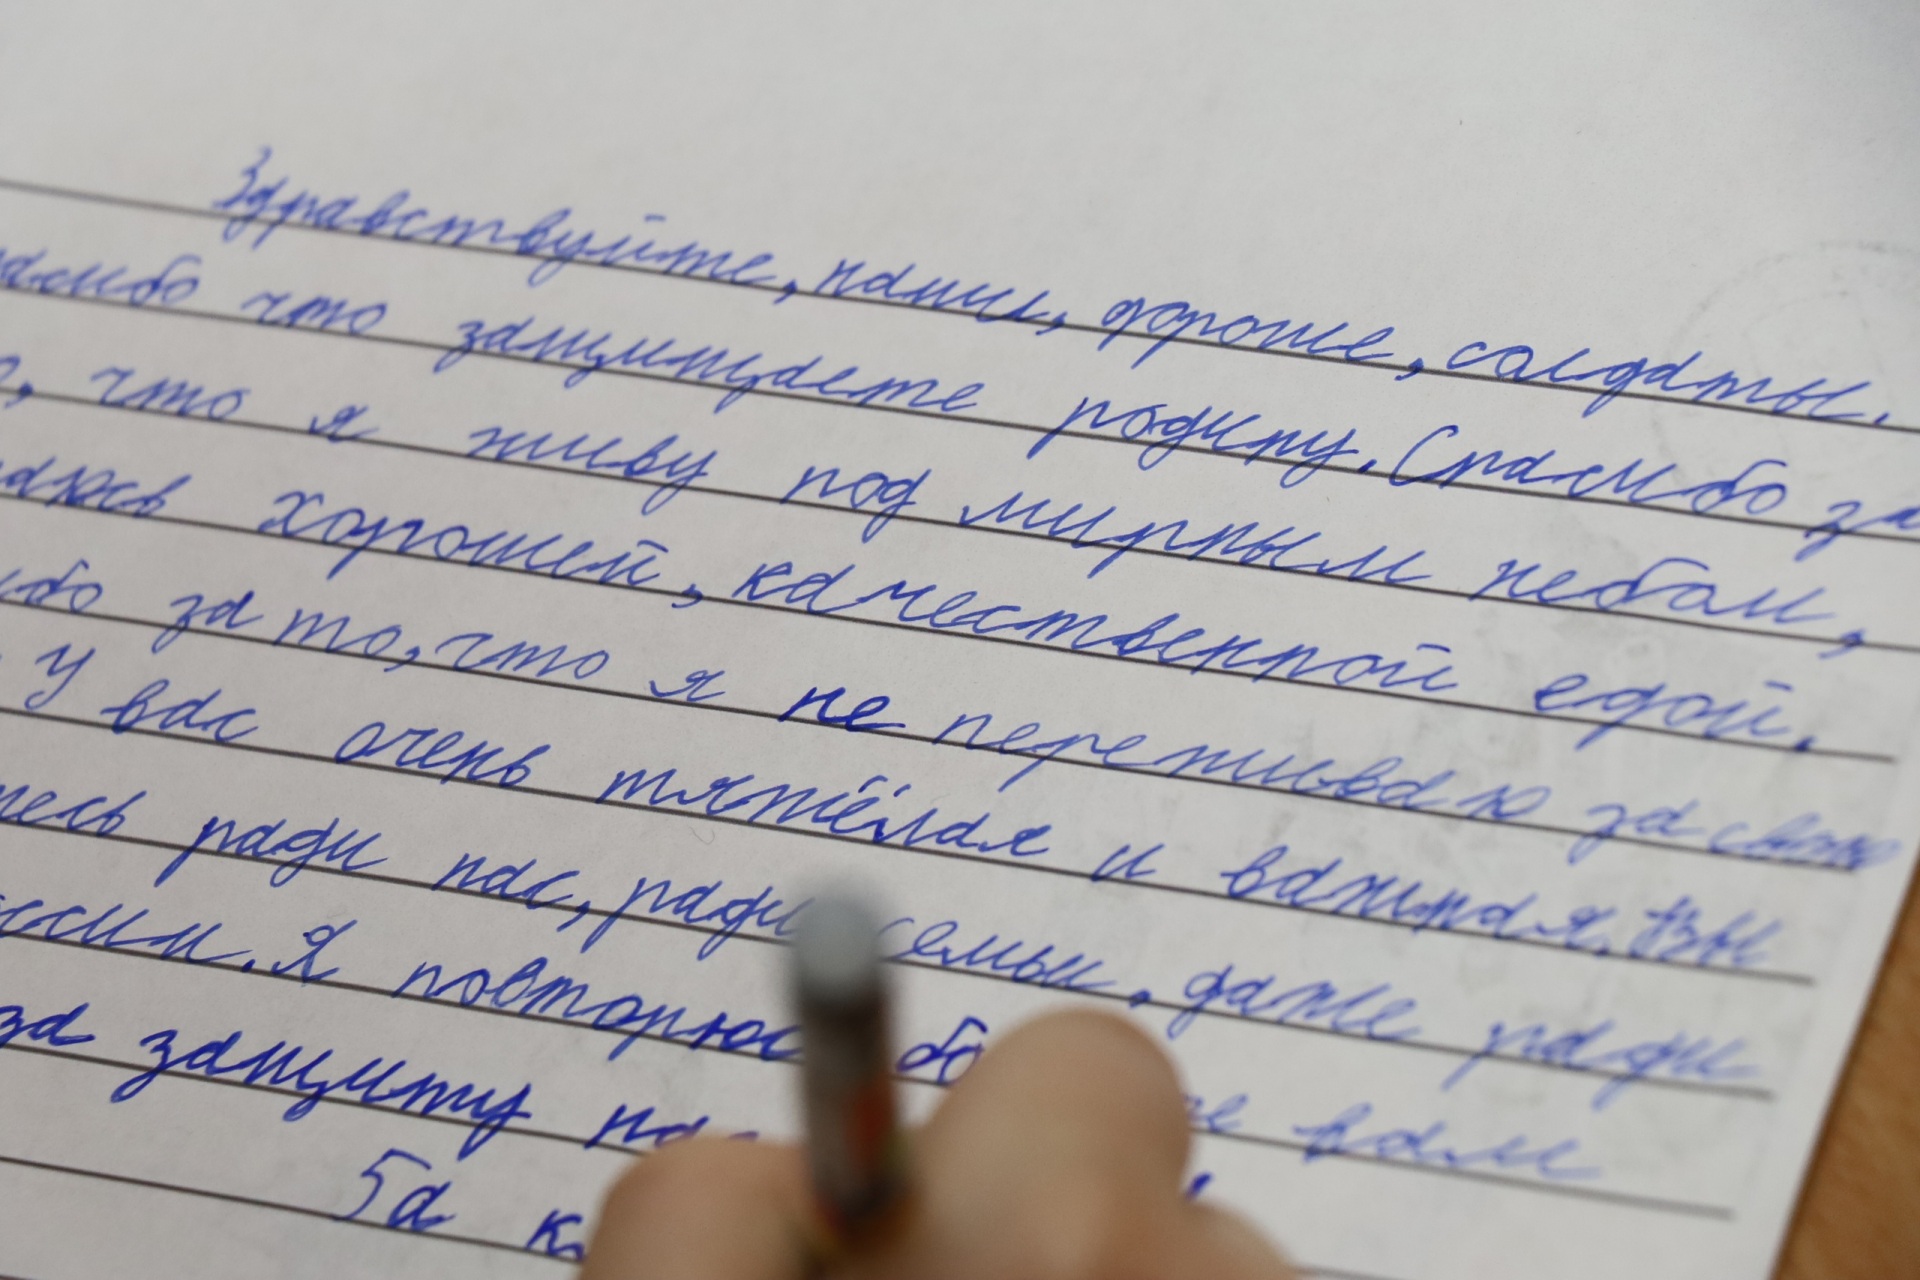 Здравствуйте, наши, дорогие, солдаты.
что защищаете родину. Спасибо за
что я живу под мирным небом,
хорошей, качественной едой.
за то, что я не переживаю за свою
У вас очень тяжёлая и важная. Вы
ради нас, ради семьи, даже ради
Я вам
за защиту
5а